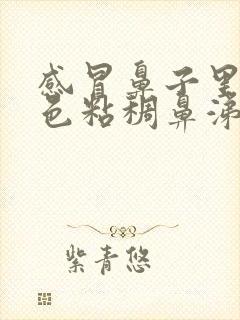 感冒鼻子里
色粘稠鼻涕
紫青悠